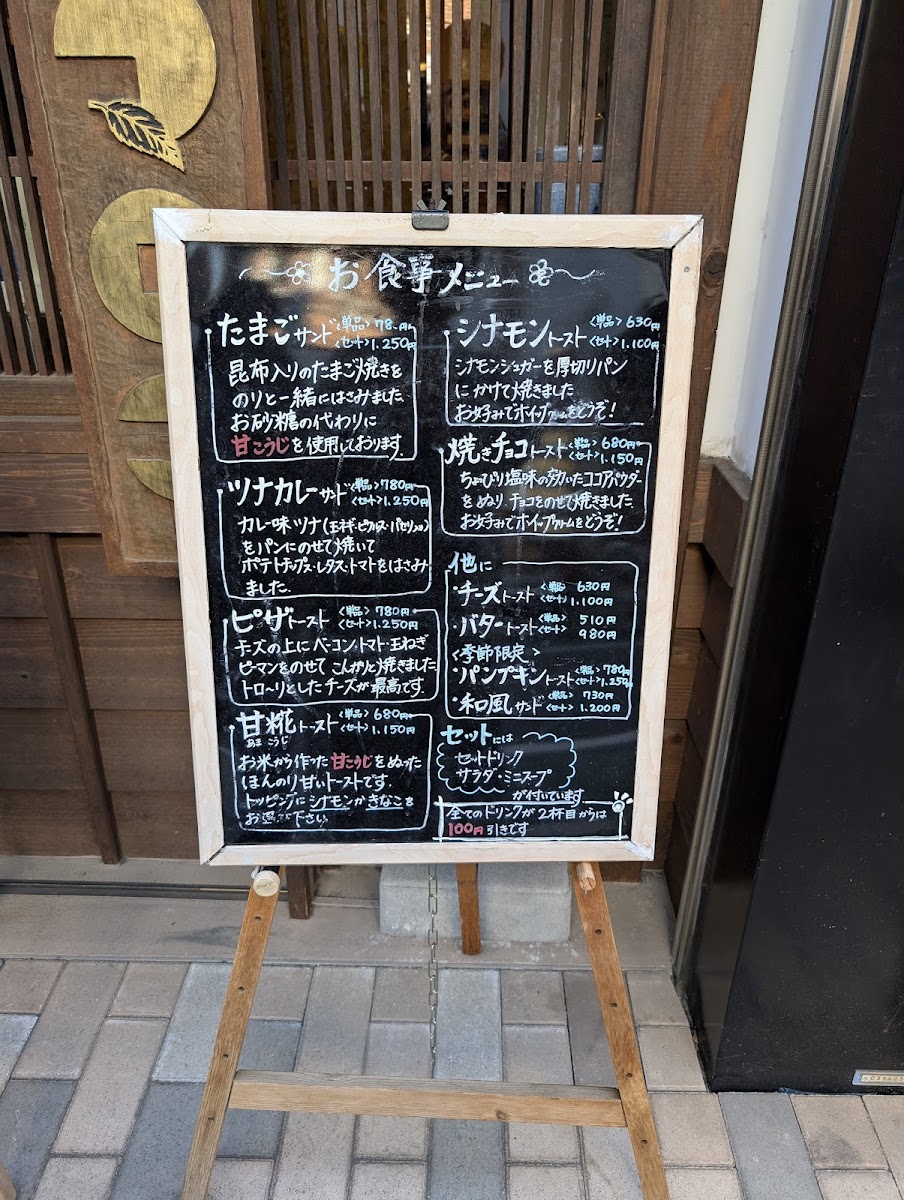 お食事メニュー
たまごサンド <単品> 78 円
<セット> 1.250円
昆布入りのたまご焼きを
のりと一緒にはさみました
お砂糖の代わりに
甘こうじを使用しております
ツナカレーサンド <単品> 780円
<セット> 1.250円
カレー味ツナ(玉ネギ・ピクルス・パセリ入り)
をパンにのせて焼いて
ポテトチップス・レタス・トマトをはさみ
ました
ピザトースト <単品> 780円
<セット> 1.250円
チーズの上にベーコン・トマト・玉ねぎ
ピーマンをのせてこんがりと焼きました
トローリとしたチーズが最高です
甘糀トースト <単品> 680円
<セット> 1.150円
あま こうじ
お米から作った甘こうじをぬった
ほんのり甘いトーストです
トッピングにシナモンかきなこを
お選び下さい
シナモントースト <単品> 630円
<セット> 1.100円
シナモンシュガーを厚切りパン
にかけて焼きました
お好みでホイップクリームをどうぞ!
焼きチョコトースト <単品> 680円
<セット> 1.150円
ちょぴり塩味の効いたココアパウダー
をぬり、チョコをのせて焼きました
お好みでホイップクリームをどうぞ!
他に
・チーズトースト <単品> 630円
<セット> 1.100円
・バタートースト <単品> 510円
<セット> 980円
<季節限定>
・パンプキントースト <単品> 780円
<セット> 1.250円
・和風サンド <単品> 730円
<セット> 1.200円
セットには
セットドリンク
サラダ・ミニスープ
が付いています
全てのドリンクが2杯目からは
100円引きです